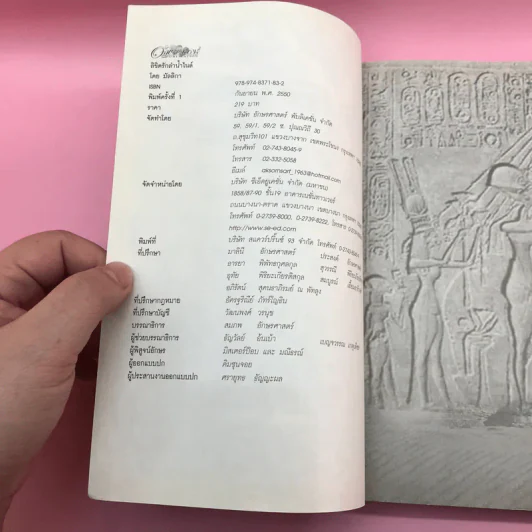 ลิขิตรักลำน้ำไนล์
โดย มัลลิกา
ISBN 978-974-8371-83-2
พิมพ์ครั้งที่ 1 กันยายน พ.ศ. 2550
ราคา 219 บาท
จัดทำโดย บริษัท อักษรศาสตร์ พับลิเคชั่น จำกัด
59, 59/1, 59/2 ซ. ปุณณวิถี 30
ถ.สุขุมวิท101 แขวงบางจาก เขตพระโขนง
โทรศัพท์ 02-743-8045-9
โทรสาร 02-332-5058
อีเมล์ aksornsart_1963@hotmail.com
จัดจำหน่ายโดย บริษัท ซีเอ็ดยูเคชั่น จำกัด (มหาชน)
1858/87-90 ชั้น19 อาคารเนชั่นทาวเวอร์
ถนนบางนา-ตราด แขวงบางนา เขตบางนา
โทรศัพท์ 0-2739-8000, 0-2739-8222, โทรสาร
http://www.se-ed.com
พิมพ์ที่ บริษัท สแควร์ปริ๊นซ์ 93 จำกัด โทรศัพท์
ที่ปรึกษา มาลินี อักษรศาสตร์ ประสงค์
อารยา พิพัทธกุศลกุล สุวรรณี
อุทัย พิริยะเกียรติสกุล สมบูรณ์
อภิรัตน์ ณ พัทลุง
ที่ปรึกษากฎหมาย
ที่ปรึกษาบัญชี วัฒนพงศ์ วรนุช
บรรณาธิการ สมภพ อักษรศาสตร์
ผู้ช่วยบรรณาธิการ ธัญวัลย์ เบญจวรรณ
ผู้พิสูจน์อักษร มิสเตอร์ป๊อบ และ มณีอรณ์
ผู้ออกแบบปก คิมชุนจอย
ผู้ประสานงานออกแบบปก ศรายุทธ ธัญญะผล